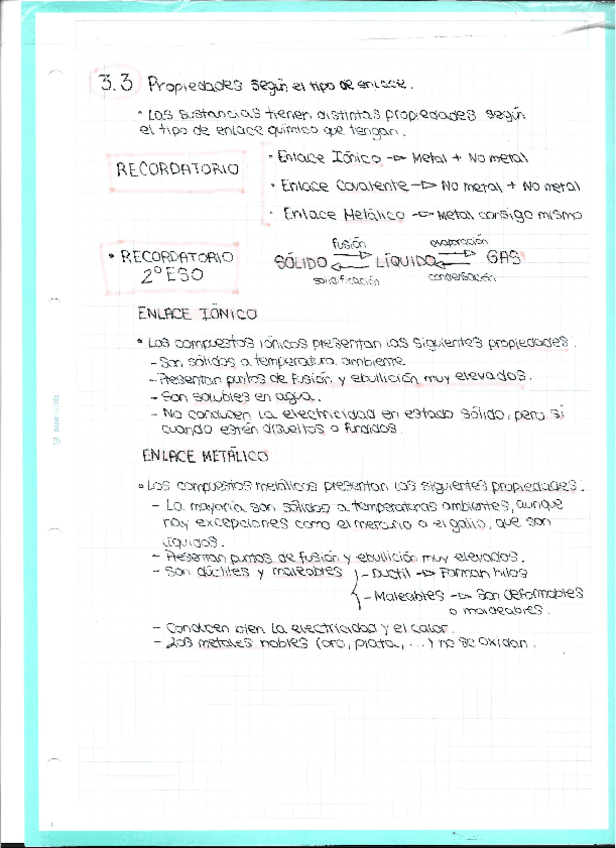 3.3 Propiedades según el tipo de enlace.
• Las sustancias tienen distintas propiedades según
el tipo de enlace químico que tengan.
RECORDATORIO
• Enlace Iónico -> Metal + No metal
• Enlace Covalente -> No metal + No metal
• Enlace Metálico -> Metal consigo mismo
• RECORDATORIO
2º ESO
fusión evaporación
SÓLIDO LÍQUIDO GAS
solidificación condensación
ENLACE IÓNICO
• Los compuestos iónicos presentan las siguientes propiedades.
- Son sólidos a temperatura ambiente.
- Presentan puntos de fusión y ebullición muy elevados.
- Son solubles en agua.
- No conducen la electricidad en estado sólido, pero sí
cuando estén disueltos o fundidos.
ENLACE METÁLICO
• Los compuestos metálicos presentan las siguientes propiedades:
- La mayoría son sólidos a temperaturas ambientes, aunque
hay excepciones como el mercurio o el galio, que son
líquidos.
- Presentan puntos de fusión y ebullición muy elevados.
- Son dúctiles y maleables
- Ductil -> Forman hilos
- Maleables -> Son deformables
o moldeables.
- Conducen bien la electricidad y el calor.
- Los metales nobles (oro, plata, ...) no se oxidan.